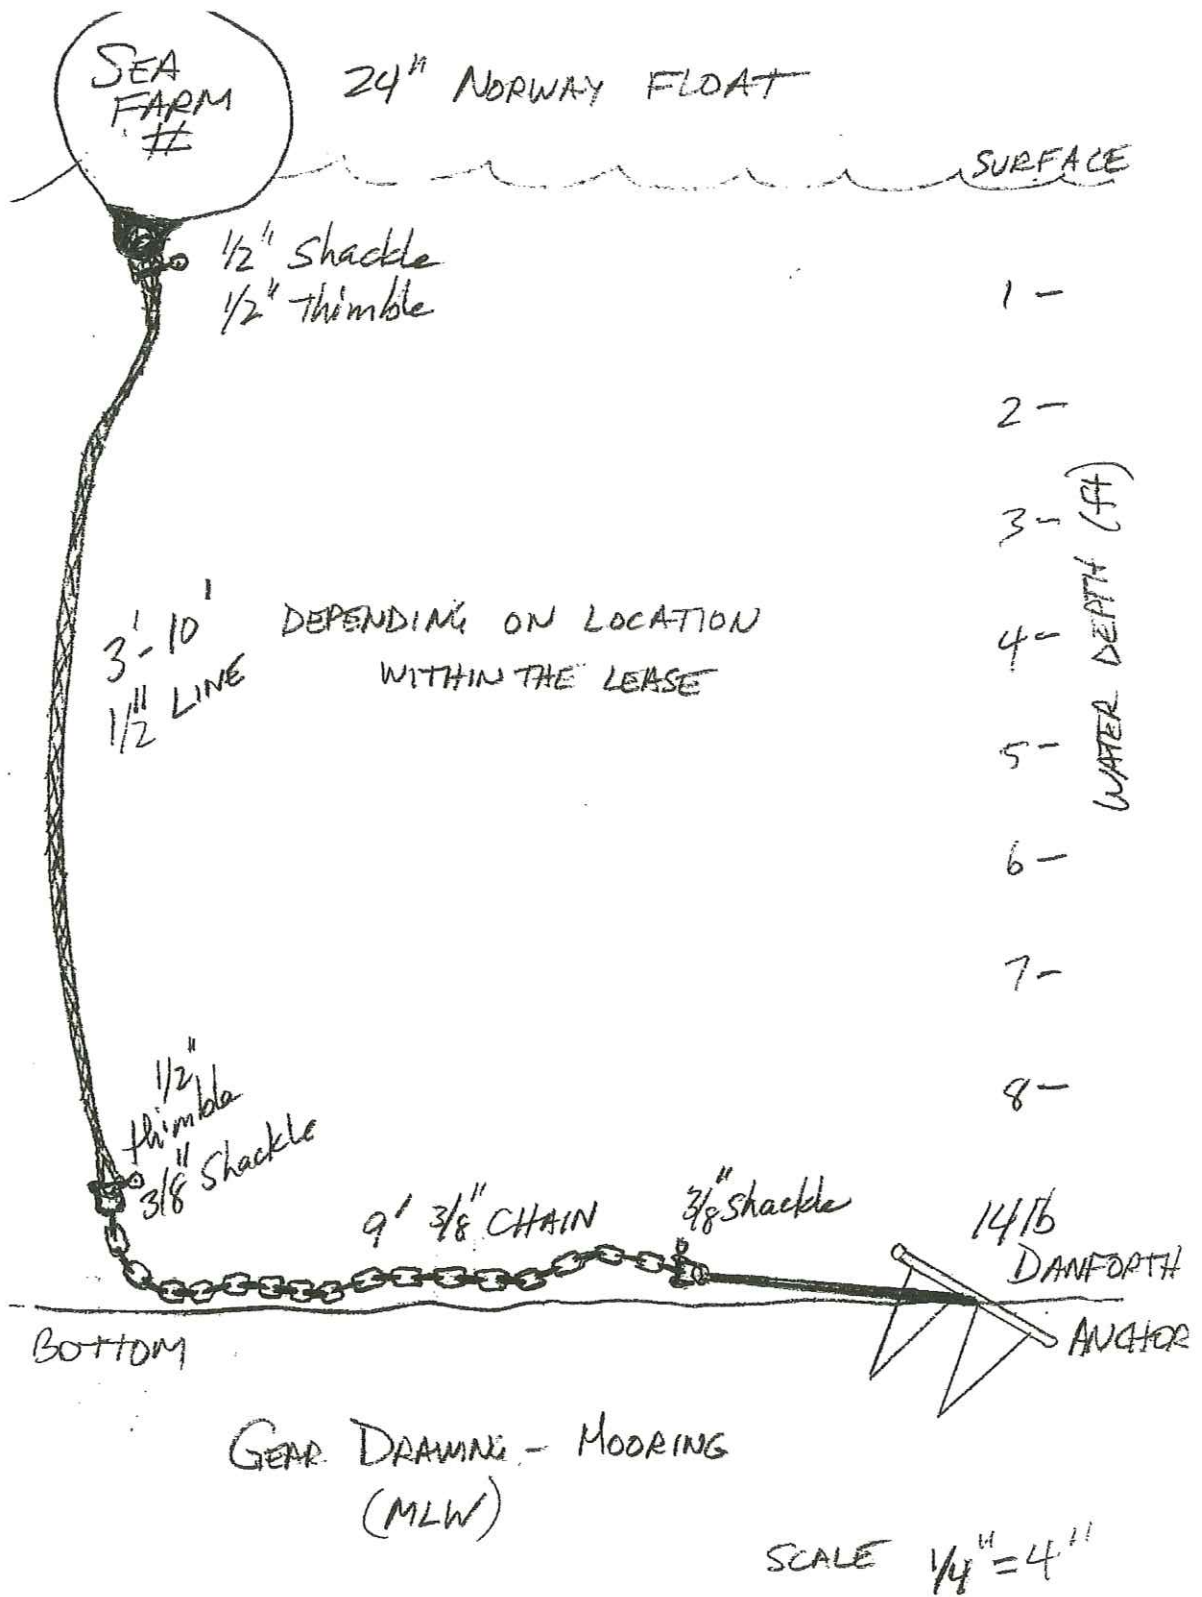 SEA
FARM
#
24" NORWAY FLOAT
SURFACE
1/2" Shackle
1/2" Thimble
1 -
2 -
3 -
4 -
5 -
6 -
7 -
8 -
WATER DEPTH (ft)
3' - 10'
1/2" LINE
DEPENDING ON LOCATION
WITHIN THE LEASE
1/2"
thimble
3/8" Shackle
9' 3/8" CHAIN
3/8" shackle
14 lb
DANFORTH
ANCHOR
BOTTOM
GEAR DRAWING - MOORING
(MLW)
SCALE 1/4" = 4"